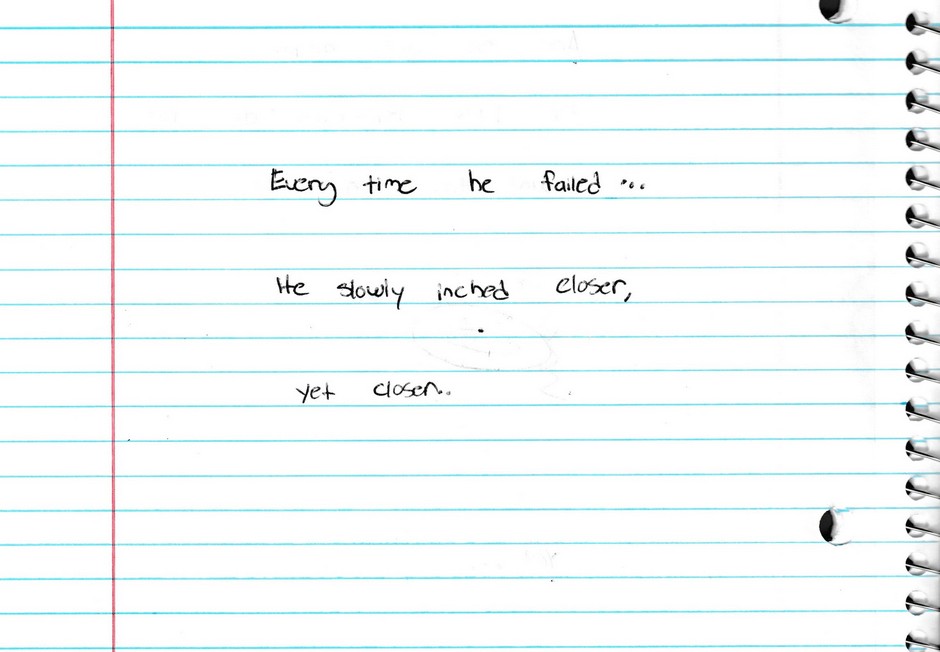 Every time he failed ...
He slowly inched closer,
yet closer..